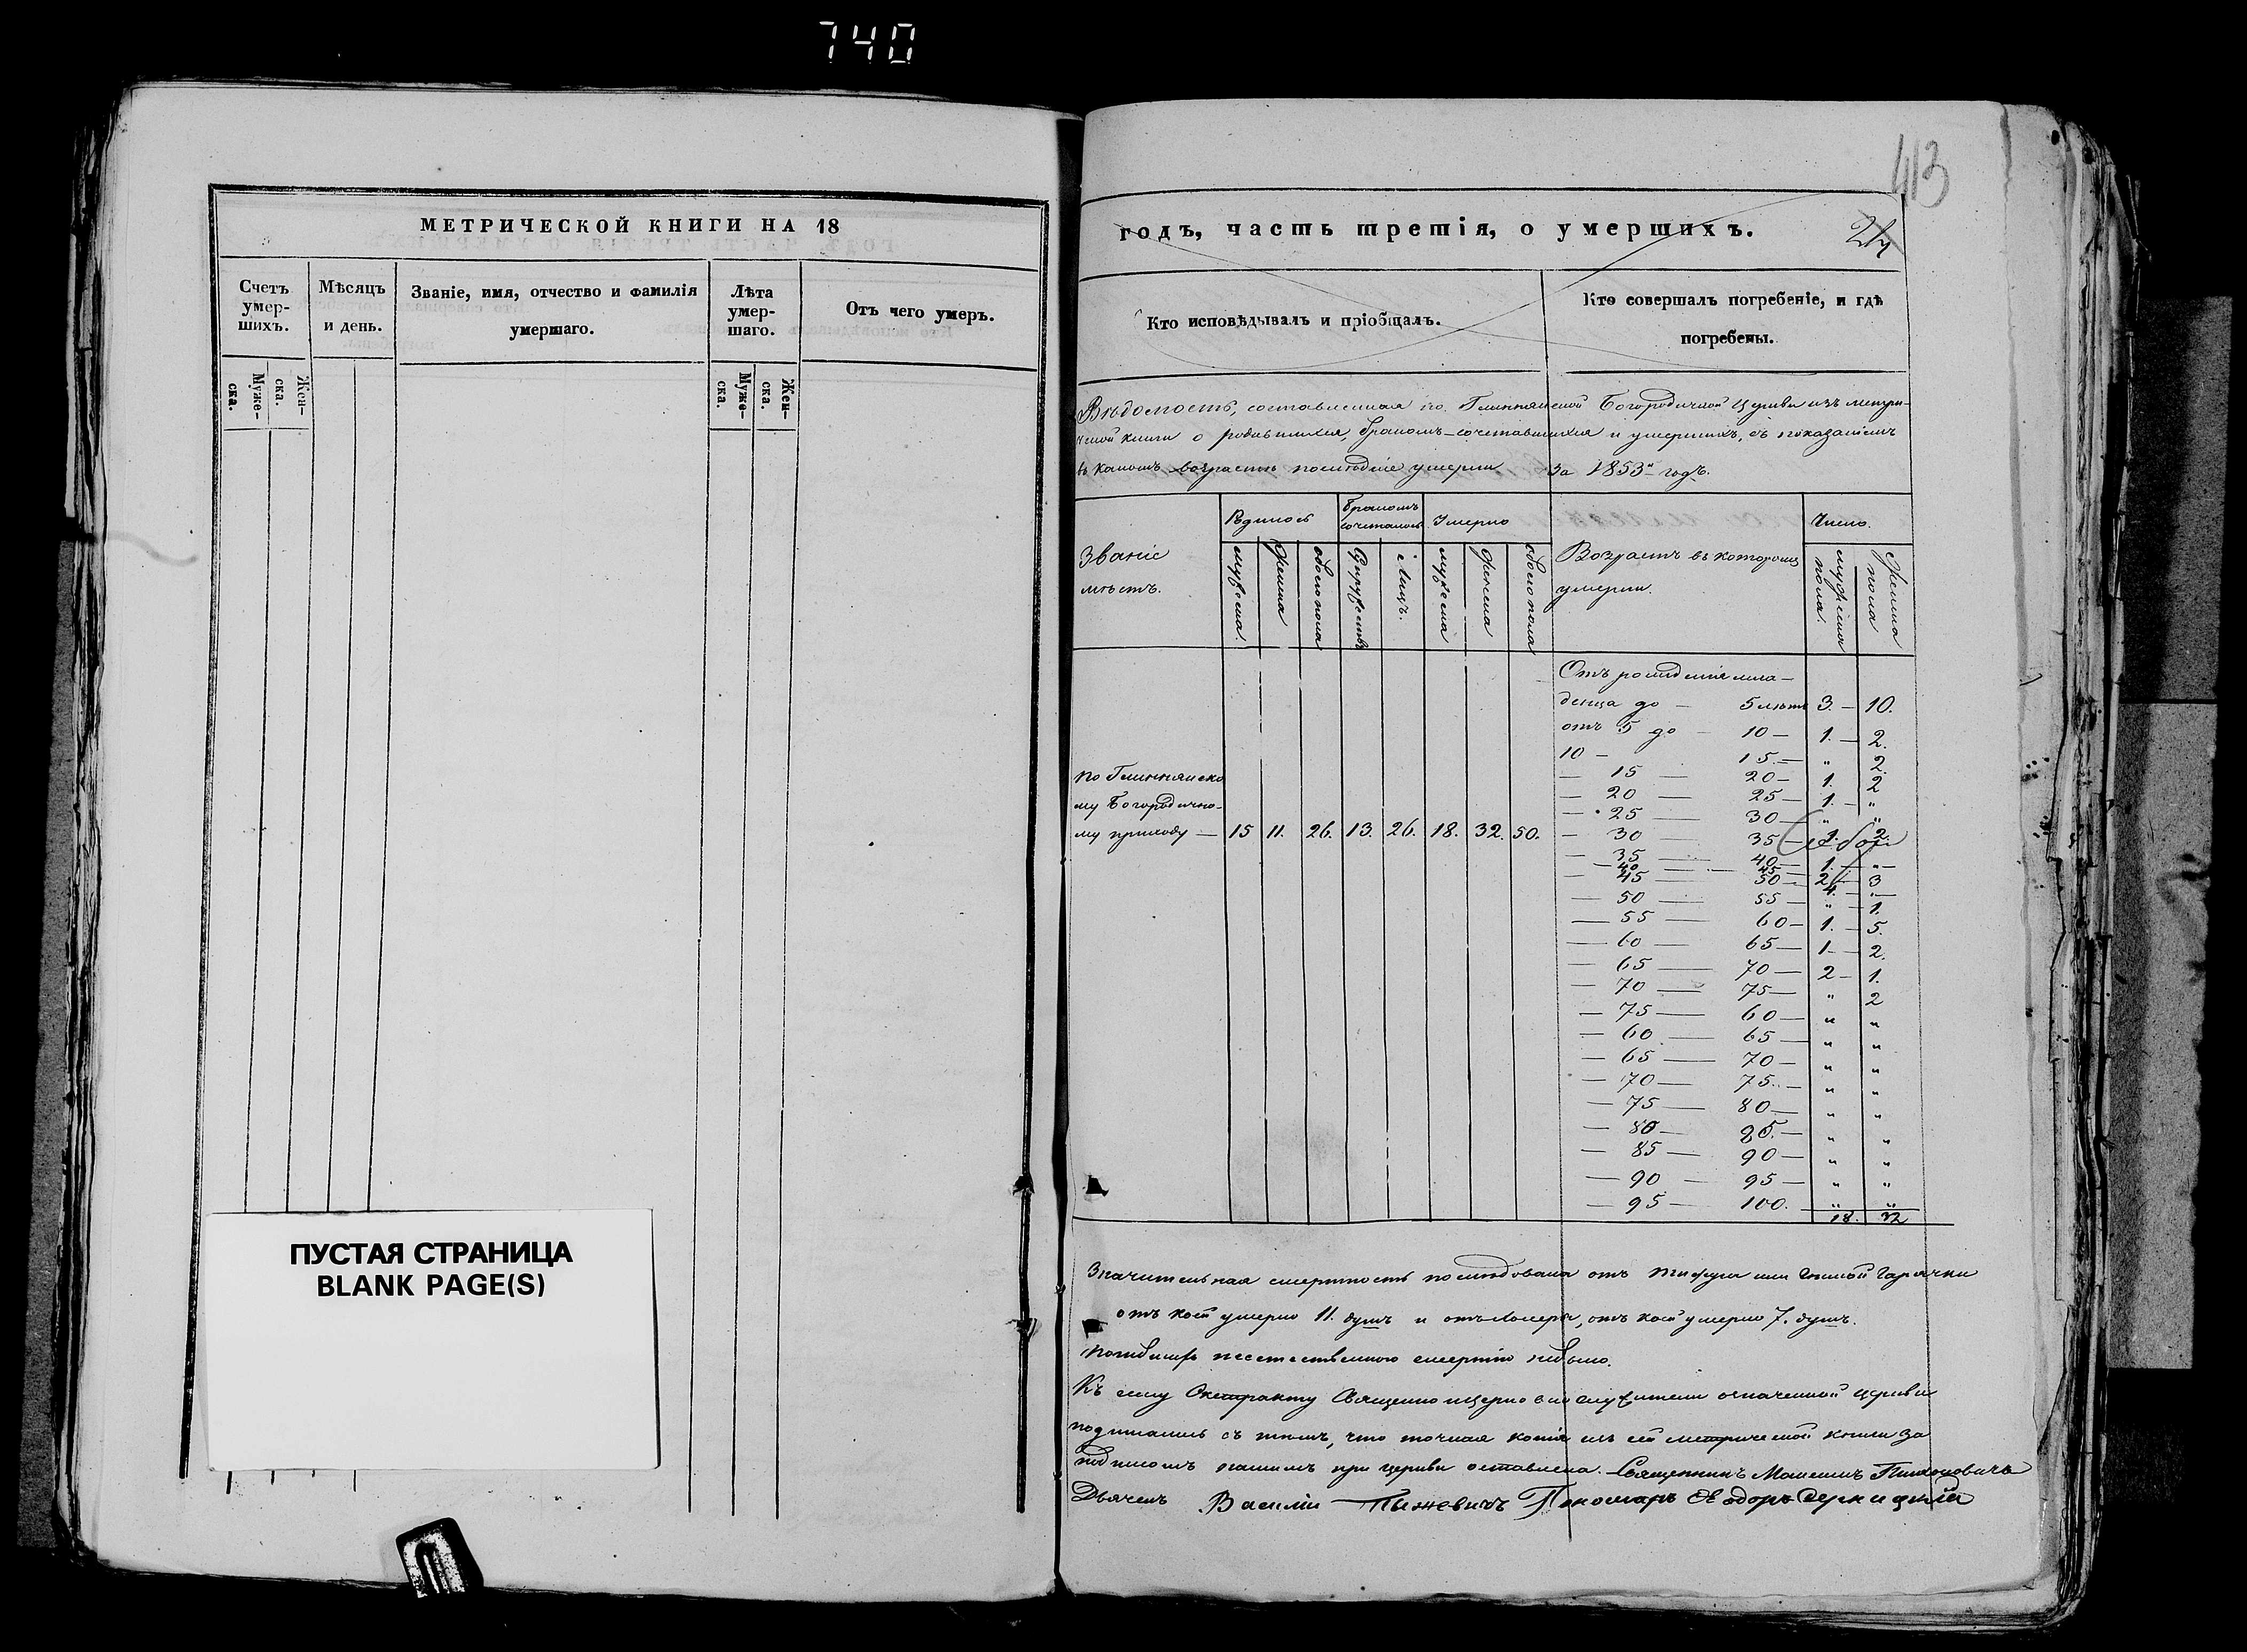 740
МЕТРИЧЕСКОЙ КНИГИ НА 18
Счетъ умер-шихъ.
Мѣсяцъ и день.
Званіе, имя, отчество и фамилія умершаго.
Лѣта умер-шаго.
Отъ чего умеръ.
Муже-ска.
Жен-ска.
Муже-ска.
Жен-ска.
ПУСТАЯ СТРАНИЦА
BLANK PAGE(S)
413
годъ, часть третія, о умершихъ.
Кто исповѣдывалъ и пріобщалъ.
Кто совершалъ погребеніе, и гдѣ погребены.
Вѣдомость, составленная по Глиннянской Богородичной Церкви изъ метри-
ческой книги о родившихся, бракомъ-сочетавшихся и умершихъ, съ показаніемъ
въ какомъ возрастѣ послѣдніе умерли за 1853й годъ.
Званіе мѣстъ.
Родилось
Бракомъ сочеталось
Умерло
Возрастъ въ которомъ умерли.
Число.
мужеска
женска
обоего пола
Супружествъ
Лицъ.
мужеска
женска
обоего пола
мужеска пола.
женска пола
Отъ рожденія мла-
денца до — 5 лѣтъ 3. — 10.
отъ 5 до — 10 — 1. — 2.
10 — 15. — " 2.
— 15 — 20 — 1. 2
— 20 — 25 — 1. — "
— 25 — 30 — " "
— 30 — 35 — 1. 2.
— 35 — 40 — 1. — "
— 40 — 45 —
— 45 — 50 — 2 3
— 50 — 55 — " 1.
— 55 — 60 — 1. — 5.
— 60 — 65 — 1 — 2.
— 65 — 70 — 2 — 1.
— 70 — 75 — " 2
— 75 — 60 — " "
— 60 — 65 — " "
— 65 — 70 — " "
— 70 — 75. — " "
— 75 — 80 — " "
— 80 — 85. — " "
— 85 — 90 — " "
— 90 — 95 — " "
— 95 — 100. " "
18. 32
по Глиннянско
му Богородично-
му приходу — 15 11. 26. 13. 26. 18. 32. 50.
Значительная смертность послѣдовала отъ тифуса или гнилой горячки
отъ коей умерло 11. душъ и отъ холеры, отъ коей умерло 7. душъ.
Погибшихъ неестественною смертію небыло.
Къ сему Екстракту Священно и церковнослужители означенной церкви
подписались съ тѣмъ, что точная копія изъ сей метрической книги за
подписомъ нашимъ при церкви оставлена. Священникъ
Дьячекъ Василій Пыжевичъ Пономарь Ѳеодоръ